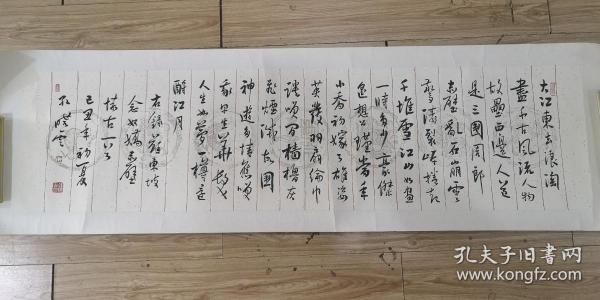 大江東去浪淘
盡千古風流人物
故壘西邊人道
是三國周郎
赤壁亂石崩雲
驚濤裂岸捲起
千堆雪江山如畫
一時多少豪傑
遙想公瑾當年
小喬初嫁了雄姿
英發羽扇綸巾
談笑間檣櫓灰
飛煙滅故國
神遊多情應笑
我早生華髮
人生如夢一樽還
酹江月
右錄蘇東坡
念奴嬌赤壁
懷古一詞
己丑年初夏
孔夫子旧书网
www.kongfz.com